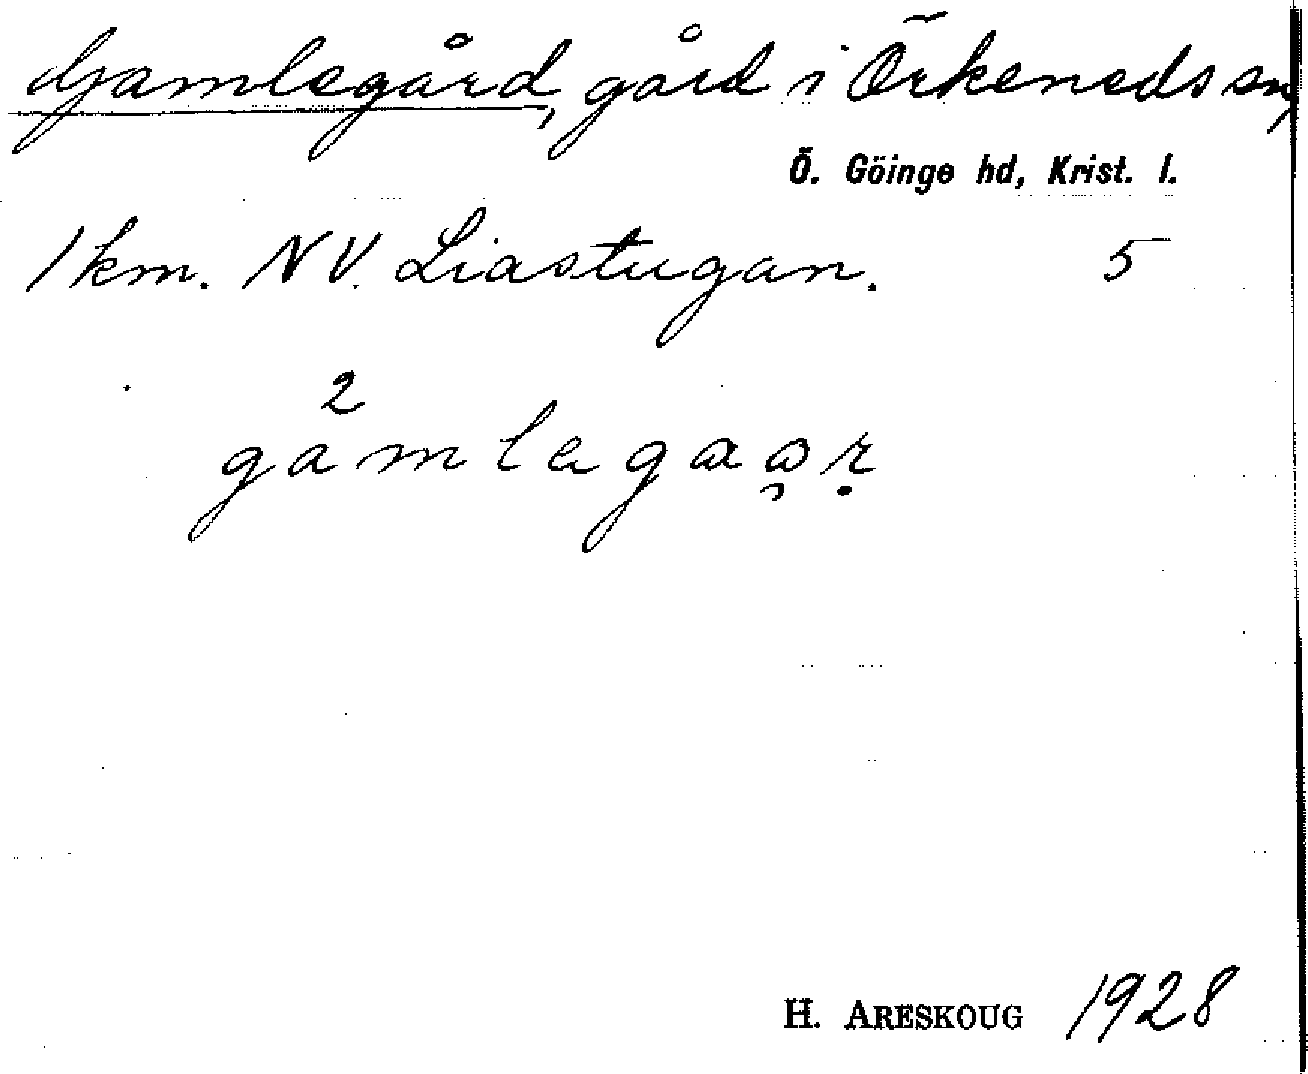 Gamlegård, gård i Örkeneds sn,
Ö. Göinge hd, Krist. l.
1 km. NV. Liastugan. 5
H. ARESKOUG 1928